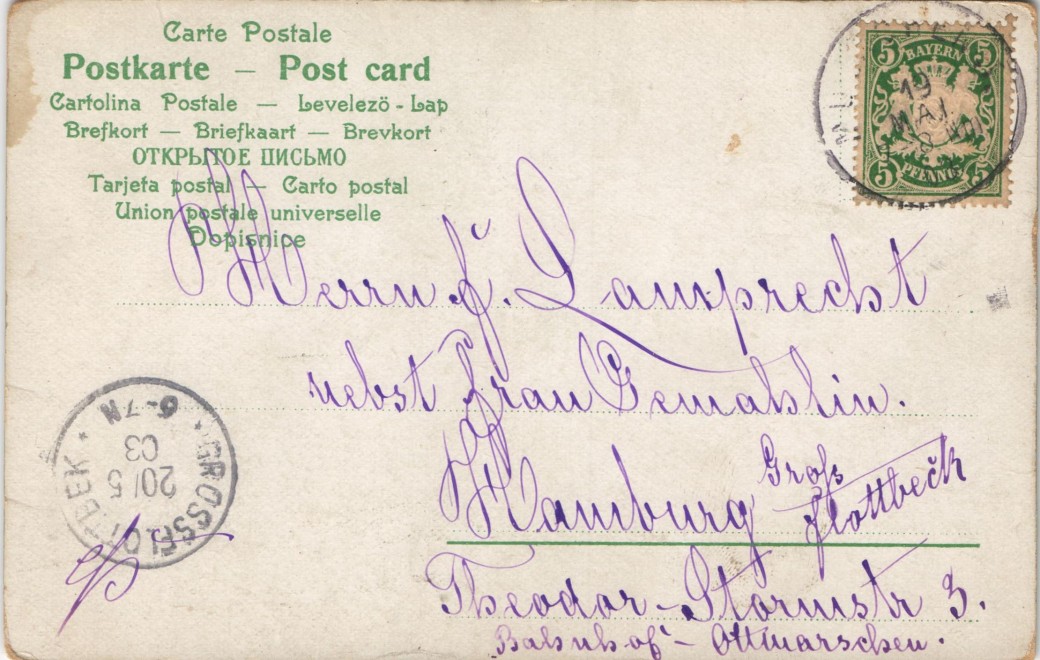 Carte Postale
Postkarte — Post card
Cartolina Postale — Levelezö-Lap
Brefkort — Briefkaart — Brevkort
ОТКРЫТОЕ ПИСЬМО
Tarjeta postal — Carto postal
Union postale universelle
Dopisnice
BAYERN
5 5
19
MAI.
5 5
PFENNIG
Herrn J. Lamprecht
nebst Frau Gemahlin.
Hamburg Groß
Flottbeck
Theodor-Stormstr 3.
Bahnhof - Ottmarschen.
GROSSFLOTTBEK
20/5
03
6-7N